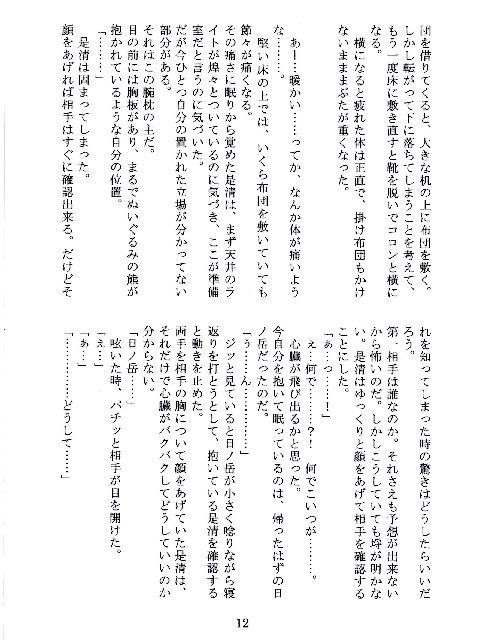 団を借りてくると、大きな机の上に布団を敷く。
しかし転がって下に落ちてしまうことを考えて、
もう一度床に敷き直すと靴を脱いでコロンと横に
なる。
横になると疲れた体は正直で、掛け布団もかけ
ないまままぶたが重くなった。
あー…暖かい……ってか、なんか体が痛いよう
な……。
堅い床の上では、いくら布団を敷いていても
節々が痛くなる。
その痛さに眠りから覚めた是清は、まず天井のラ
イトが煌々とついているのに気づき、ここが準備
室だと言うのに気づいた。
だが今ひとつ自分の置かれた立場が分かってない
部分がある。
それはこの腕枕の主だ。
目の前には胸板があり、まるでぬいぐるみの熊が
抱かれているような自分の位置。
「………」
是清は固まってしまった。
顔をあげれば相手はすぐに確認出来る。だけどそ
れを知ってしまった時の驚きはどうしたらいいだ
ろう。
第一相手は誰なのか。それさえも予想が出来ない
から怖いのだ。しかしこうしていても埒が明かな
い。是清はゆっくりと顔をあげて相手を確認する
ことにした。
「あっ……！」
え…何で……？！何でこいつが………。
心臓が飛び出るかと思った。
今自分を抱いて眠っているのは、帰ったはずの日
ノ岳だったのだ。
「う……ん…………」
ジッと見ていると日ノ岳が小さく唸りながら寝
返りを打とうとして、抱いている是清を確認する
と動きを止めた。
両手を相手の胸について顔をあげていた是清は、
それだけで心臓がバクバクしてどうしていいのか
分からない。
「日ノ岳……」
呟いた時、パチッと相手が目を開けた。
「ぇ…」
「ぁ…」
「…………どうして……」
12